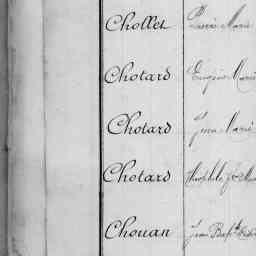 Chollet Pierre Marie
Chotard Eugène Marie
Chotard Jean Marie
Chotard Théophile Fçs Marie
Chouan Jean Bapte